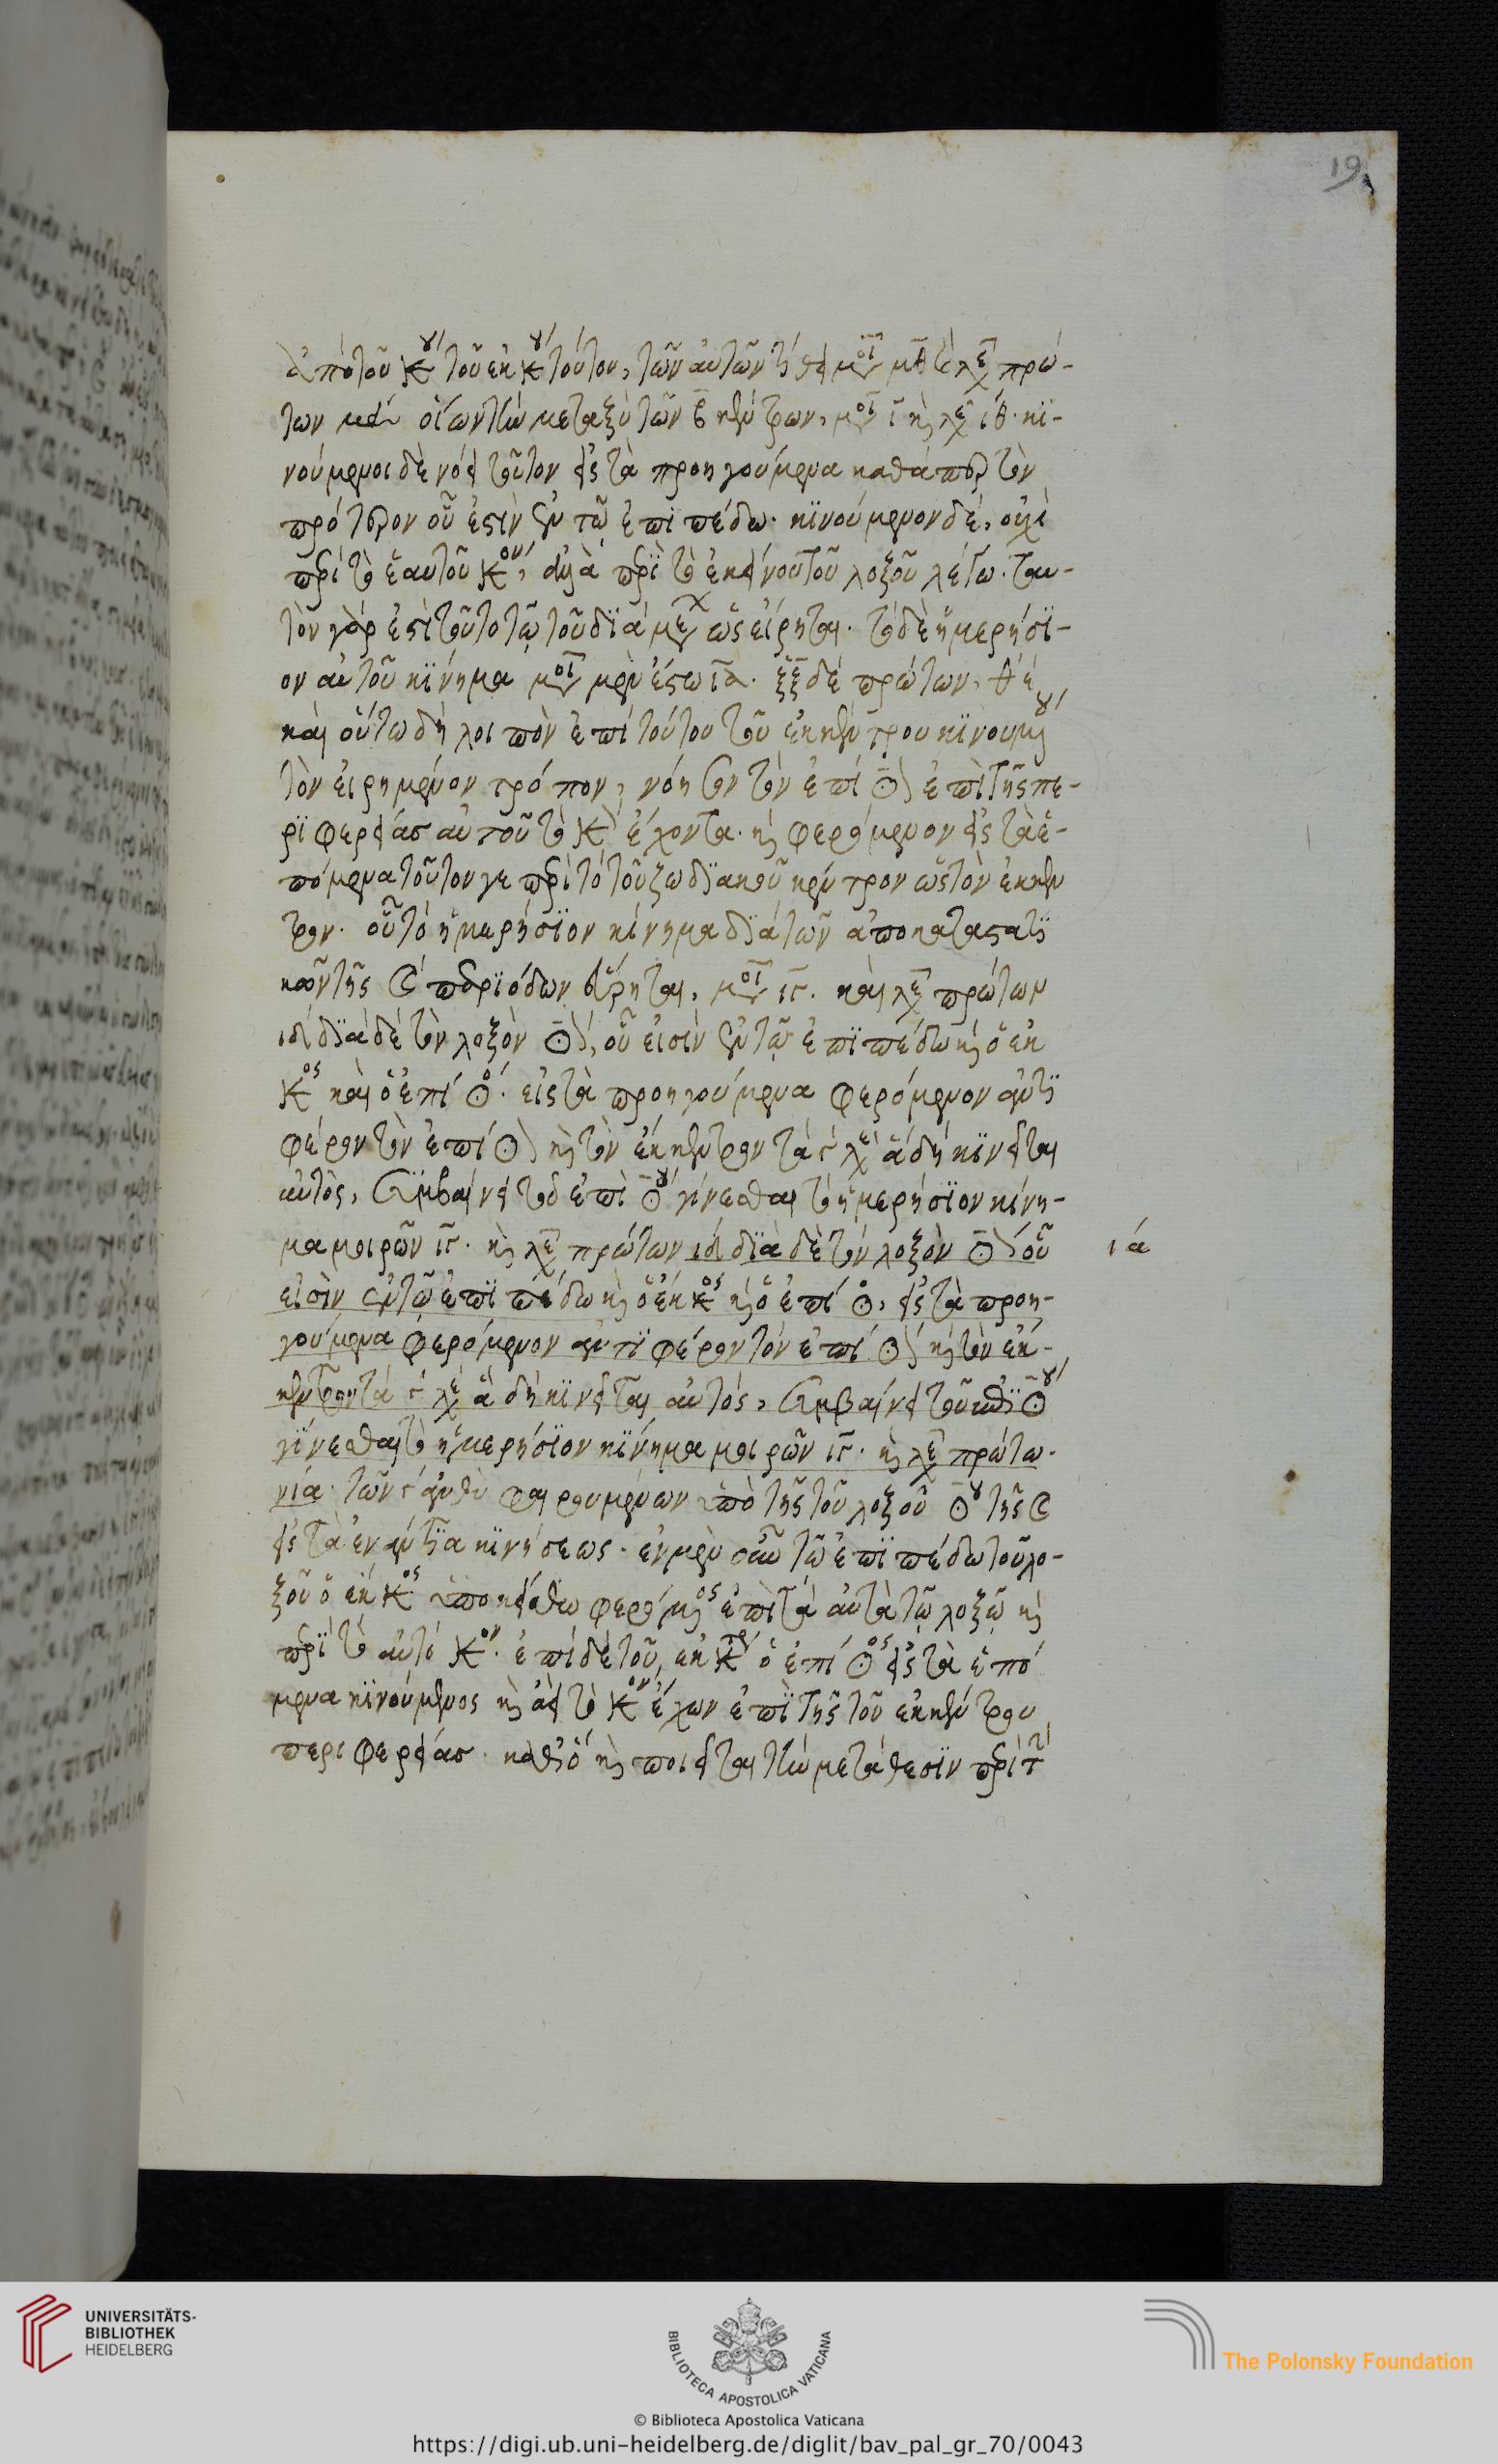 19
ἀπὸ τοῦ Κου τοῦ ἐκΚου τούτου, τῶν αὐτῶν
των οἵων τὴν μεταξὺ τῶν κέντρων, ιθ. κϊ-
νούμενοι δὲ νόει τοῦτον εἰς τὰ προηγούμενα καθάπερ τὸν
πρότερον οὗ ἐστὶν ἐν τῶ ἐπιπέδω. κϊνούμενον δέ, οὐχὶ
περὶ τὸ ἑαυτοῦ Κον, ἀλλὰ περὶ τὸ ἐκείνου τοῦ λοξοῦ λέγω. ταυ-
τὸν γάρ ἐστὶ τοῦτο τῶ τοῦ διὰ μέσ ὡς εἴρηται. τὸ δὲ ἡμερήσϊ-
ον αὐτοῦ κϊνημα μοι μὲν ἔστω ια. ξξ δὲ πρώτων, θ
καὶ οὕτω δὴ λοιπὸν ἐπὶ τούτου τοῦ ἐκκέντρου κϊνουμου
τὸν εἰρημένον τρόπον, νόησον τὸν ἐπί ☉ ἐπὶ τῆς πε-
ρϊφερείας αὐτοῦ τὸ Κ ἔχοντα. κϳ φερόμενον εἰς τὰ ἑ-
πόμενα τοῦτον γε περὶ τὸ τοῦ ζωδϊακοῦ κέντρον ὡς τὸν ἔκκεν
τρον. οὗ τὸ ἡμερήσϊον κίνημα δϊὰ τῶν ἀποκαταστατϊ
κῶν τῆς ☾ περϊόδων εὕρηται, μοι ιγ. καὶ λε πρώτων
ιδ δϊὰ δὲ τὸν λοξὸν ☉, οὗ εἰσὶν ἐν τῶ ἐπϊπέδω κϳ ὁ ἐκ
Κος καὶ ὁ ἐπί ☉. εἰς τὰ προηγούμενα φερόμενον ἀντϊ
φέρειν τὸν ἐπί ☉ κϳ τὸν ἔκκεντρον τὰ λε ἃ δὴ κϊνεῖται
αὐτός, συμβαίνει τοῦ ἐπὶ ☉ου γίνεσθαι τὸ ἡμερήσϊον κίνη-
μα μοιρῶν ιγ. κϳ λε πρώτων ιδ δϊὰ δὲ τὸν λοξὸν ☉ οὗ
ιά
εἰσὶν ἐν τῶ ἐπϊπέδω κϳ ὁ ἔκΚος κϳ ὁ ἐπί ☉, εἰς τὰ προη-
γούμενα φερόμενον ἀντϊφέρειν τὸν ἐπί ☉ κϳ τὸν ἔκ-
κεντρον τὰ λε ἃ δὴ κϊνεῖται αὐτός, συμβαίνει τοῦ ἐπϊ ☉ου
γίνεσθαι τὸ ἡμερήσϊον κϊνημα μοιρῶν ιγ. κϳ λε πρώτω.
νιά. τῶν ἀνθυφαιρουμένων ἀπὸ τῆς τοῦ λοξοῦ ☉ου τῆς ☾
εἰς τὰ ἐναντϊα κϊνήσεως. ἐν μὲν οὖν τῶ ἐπϊπέδω τοῦ λο-
ξοῦ ὁ ἔκΚος ὑποκείσθω φερόμος ἐπὶ τὰ αὐτὰ τῶ λοξῶ κϳ
περϊ τὸ αὐτὸ Κον. ἐπὶ δὲ τοῦ ἐκΚ ὁ ἐπί ☉ος εἰς τὰ ἑπό
μενα κϊνούμενος κϳ ἀεὶ τὸ Κον ἔχων ἐπϊ τῆς τοῦ ἐκκέντρου
περιφερείας. καθὸ κϳ ποιεῖται τὴν μετάθεσϊν περὶ τ
UNIVERSITÄTS-
BIBLIOTHEK
HEIDELBERG
BIBLIOTECA APOSTOLICA VATICANA
The Polonsky Foundation
© Biblioteca Apostolica Vaticana
https://digi.ub.uni-heidelberg.de/diglit/bav_pal_gr_70/0043